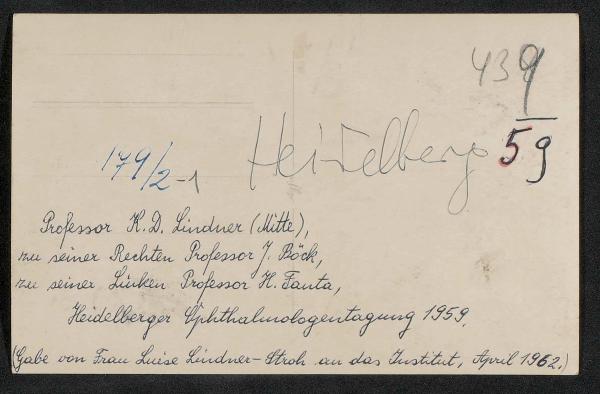 439
59
Heidelberg
179/2-1
Professor K. D. Lindner (Mitte),
zu seiner Rechten Professor J. Böck,
zu seiner Linken Professor H. Fanta,
Heidelberger Ophthalmologentagung 1959.
(Gabe von Frau Luise Lindner-Stroh an das Institut, April 1962.)